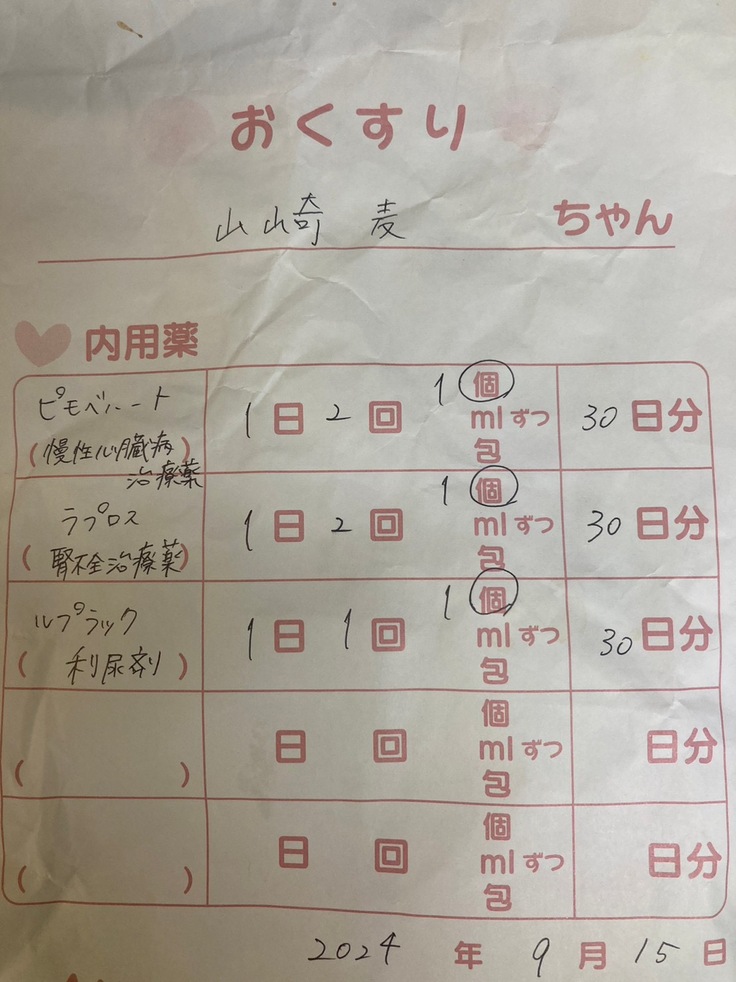 おくすり
山崎 麦 ちゃん
内用薬
ピモベハート
(慢性心臓病
治療薬)
1日 2回 1 個
ml ずつ
包
30日分
ラプロス
(腎不全治療薬)
1日 2回 1 個
ml ずつ
包
30日分
ルプラック
(利尿剤)
1日 1回 1 個
ml ずつ
包
30日分
( )
日 回 個
ml ずつ
包
日分
( )
日 回 個
ml ずつ
包
日分
2024 年 9 月 15 日